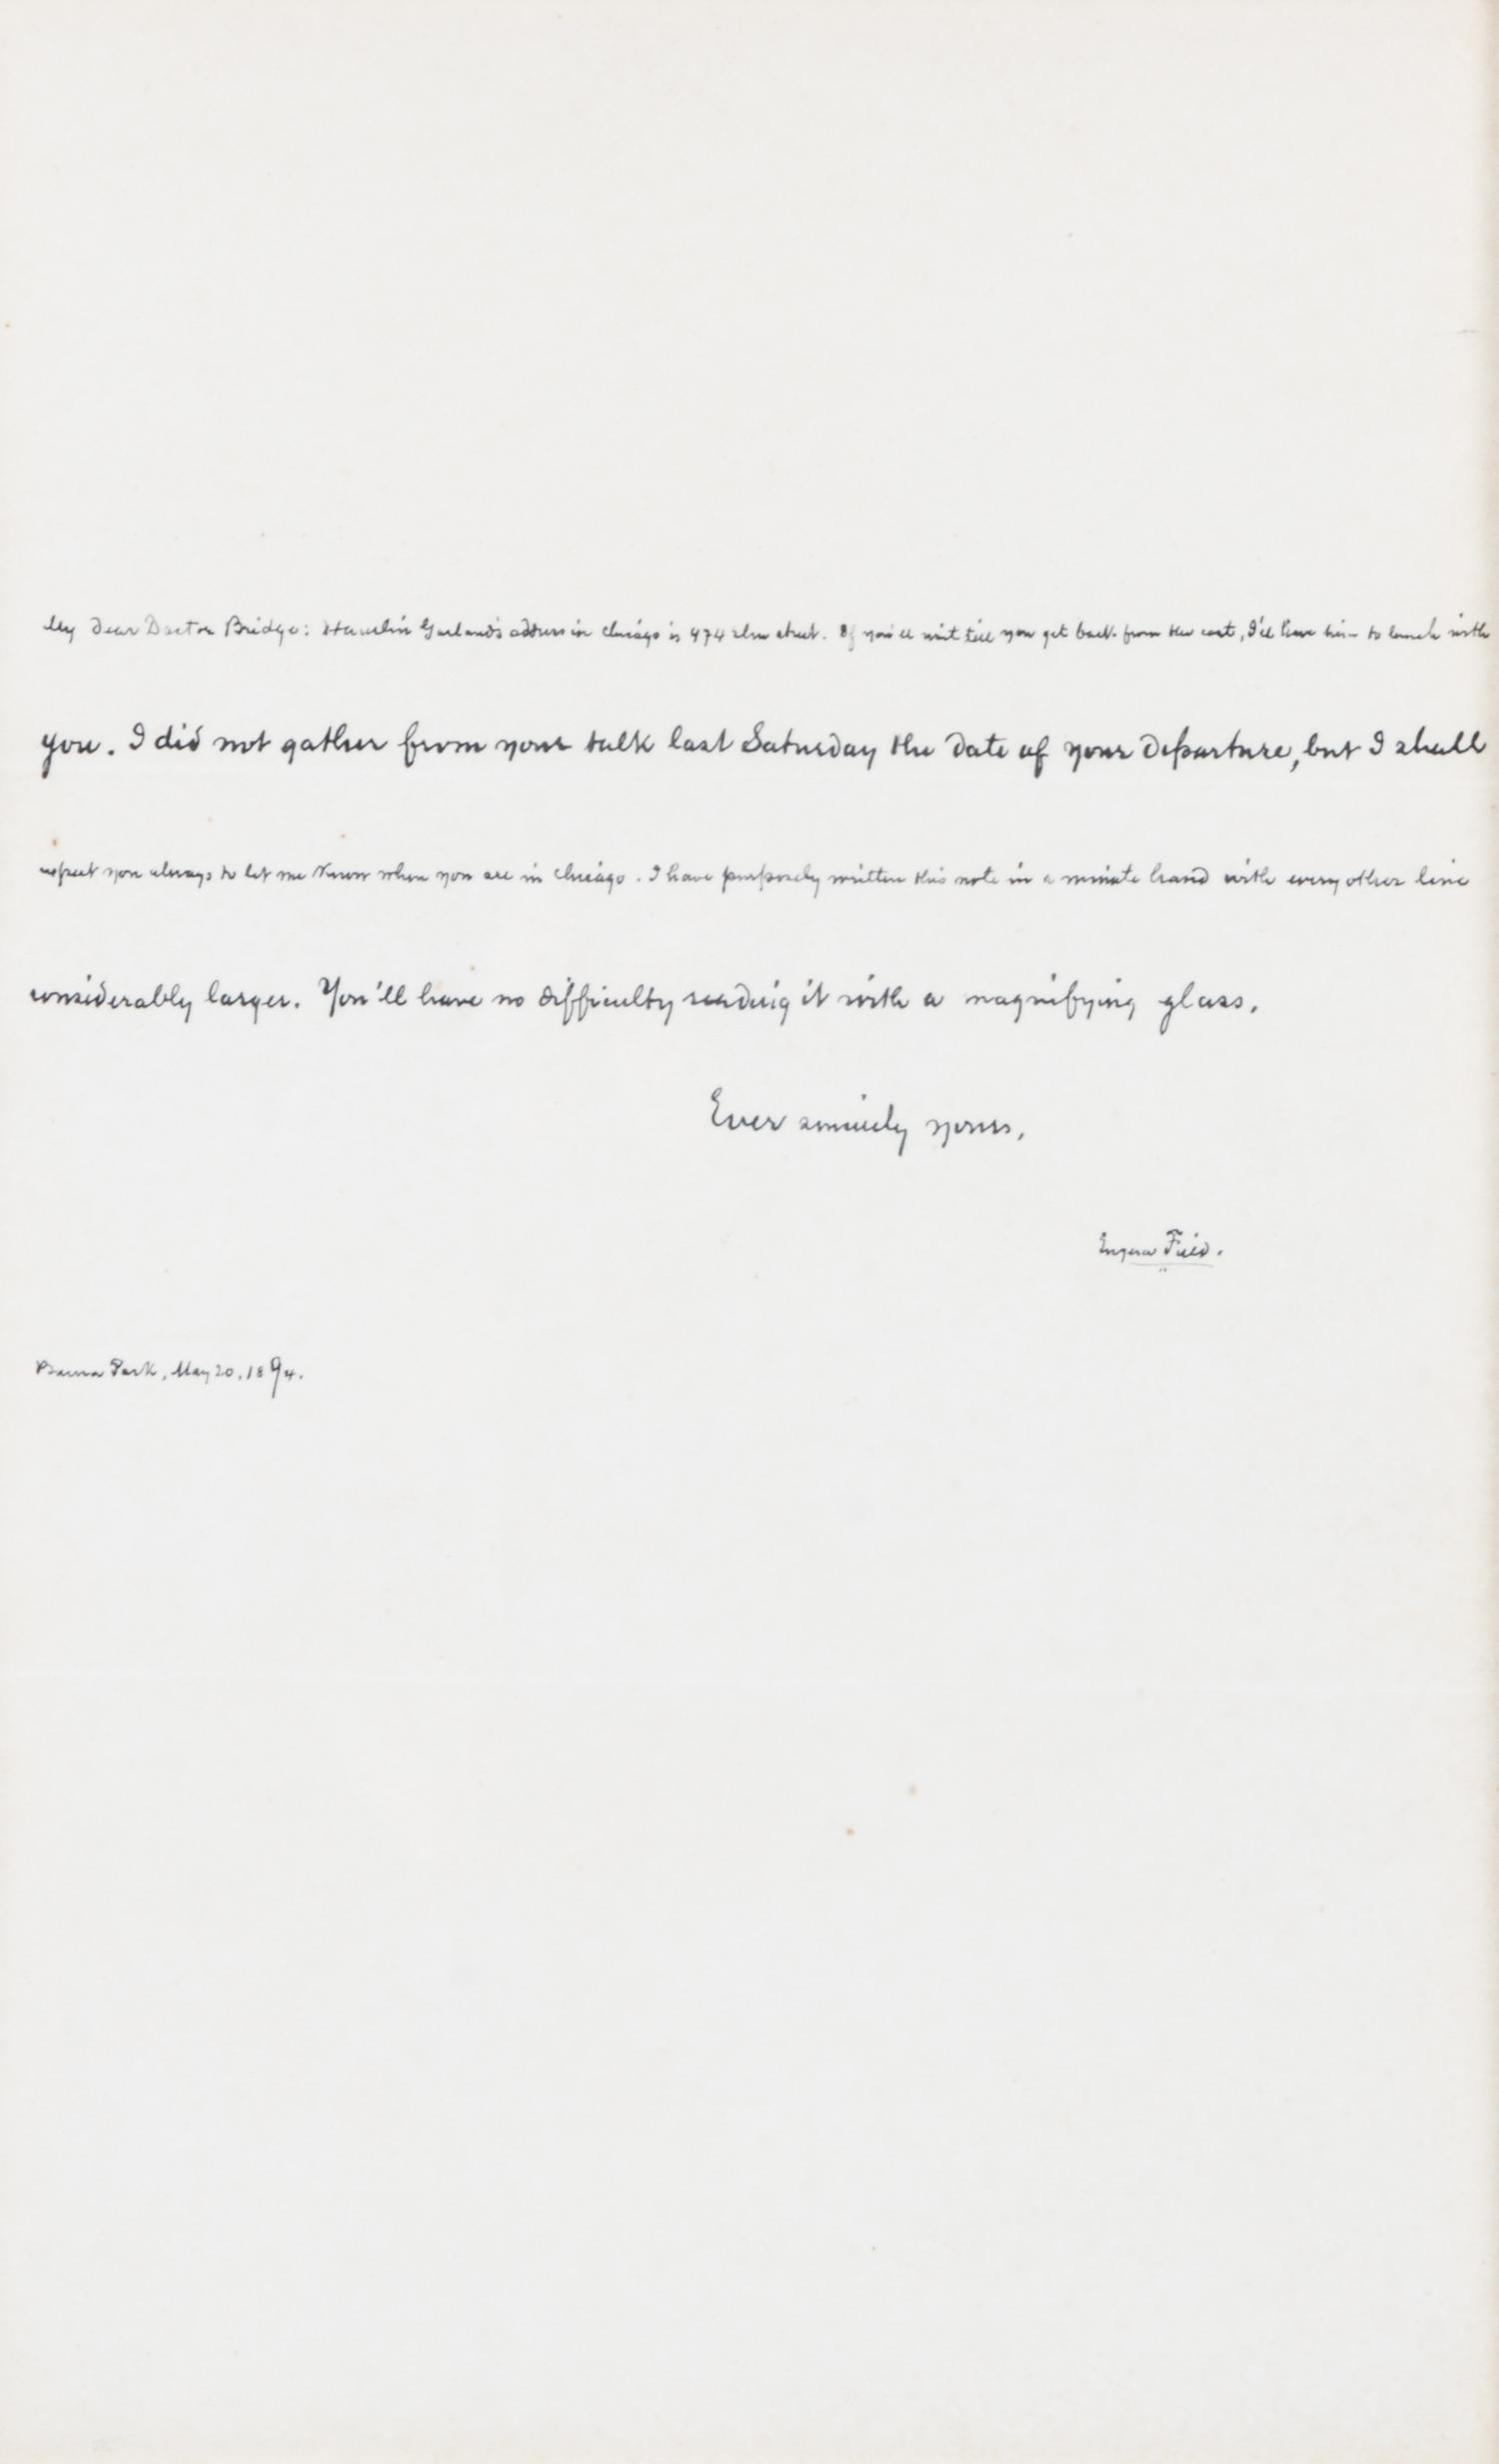 My Dear Doctor Bridge: Hamlin Garland's address in Chicago is 474 elm street. If you'll wait till you get back from the east, I'll have him to lunch with
you. I did not gather from your talk last Saturday the date of your departure, but I shall
expect you always to let me know when you are in Chicago. I have purposely written this note in a minute hand with every other line
considerably larger. You'll have no difficulty reading it with a magnifying glass.
Ever sincerely yours,
Eugene Field.
Buena Park, May 20, 1894.